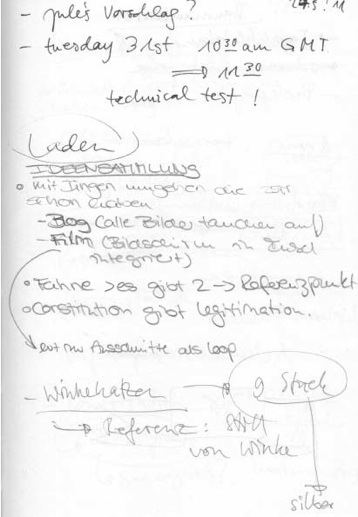 - jule's Vorschlag?
- tuesday 31st 10 30 am GMT
⇒ 11 30
technical test !
Laden
IDEENSAMMLUNG
o mit Dingen umgehen die wir
schon haben
- Blog (alle Bilder tauchen auf)
- Film (Bildschirm in Insel
integriert)
o Fahne > es gibt 2 → Referenzpunkt
o Constitution gibt legitimation.
evt nur Ausschnitte als loop
- Winkekatzen → 9 Stück
→ Referenz: statt
von Winke
silber